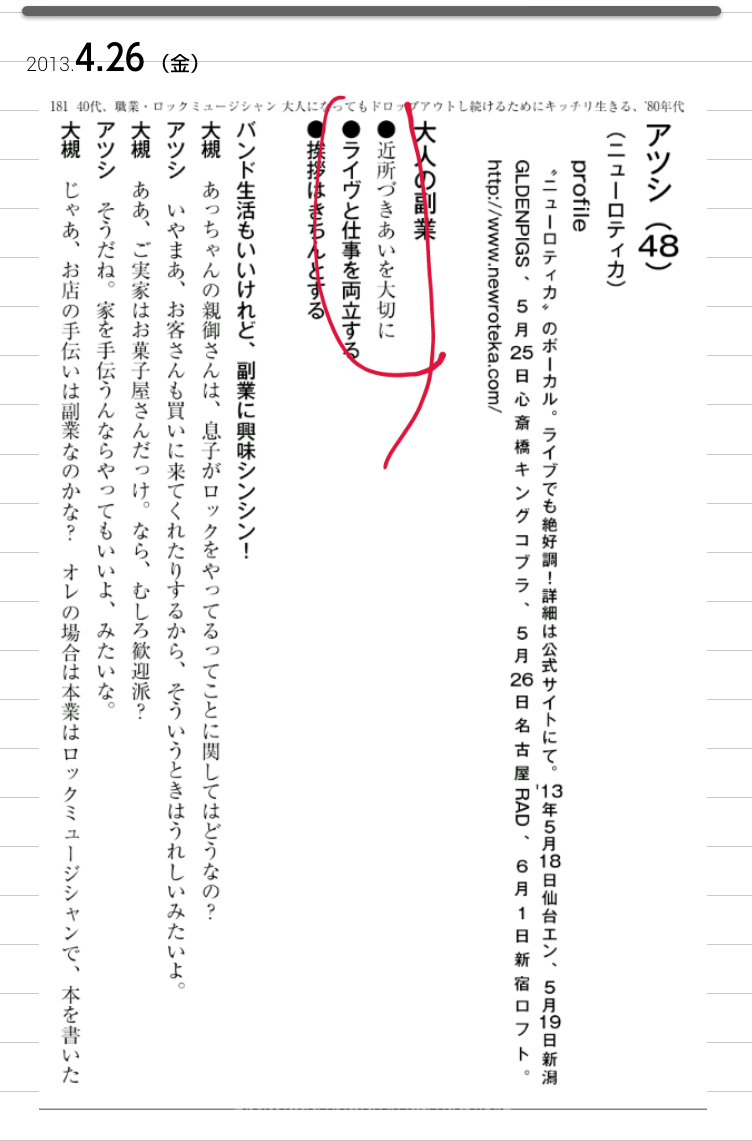 2013.4.26（金）
181 40代、職業・ロックミュージシャン 大人になってもドロップアウトし続けるためにキッチリ生きる、'80年代
アツシ（48）
（ニューロティカ）
profile
〝ニューロティカ〟のボーカル。ライブでも絶好調！詳細は公式サイトにて。'13年5月18日仙台エン、5月19日新潟
GLDENPIGS、5月25日心斎橋キングコブラ、5月26日名古屋RAD、6月1日新宿ロフト。
http://www.newroteka.com/
大人の副業
●近所づきあいを大切に
●ライヴと仕事を両立する
●挨拶はきちんとする
バンド生活もいいけれど、副業に興味シンシン！
大槻　あっちゃんの親御さんは、息子がロックをやってるってことに関してはどうなの？
アツシ　いやまあ、お客さんも買いに来てくれたりするから、そういうときはうれしいみたいよ。
大槻　ああ、ご実家はお菓子屋さんだっけ。なら、むしろ歓迎派？
アツシ　そうだね。家を手伝うんならやってもいいよ、みたいな。
大槻　じゃあ、お店の手伝いは副業なのかな？　オレの場合は本業はロックミュージシャンで、本を書いた